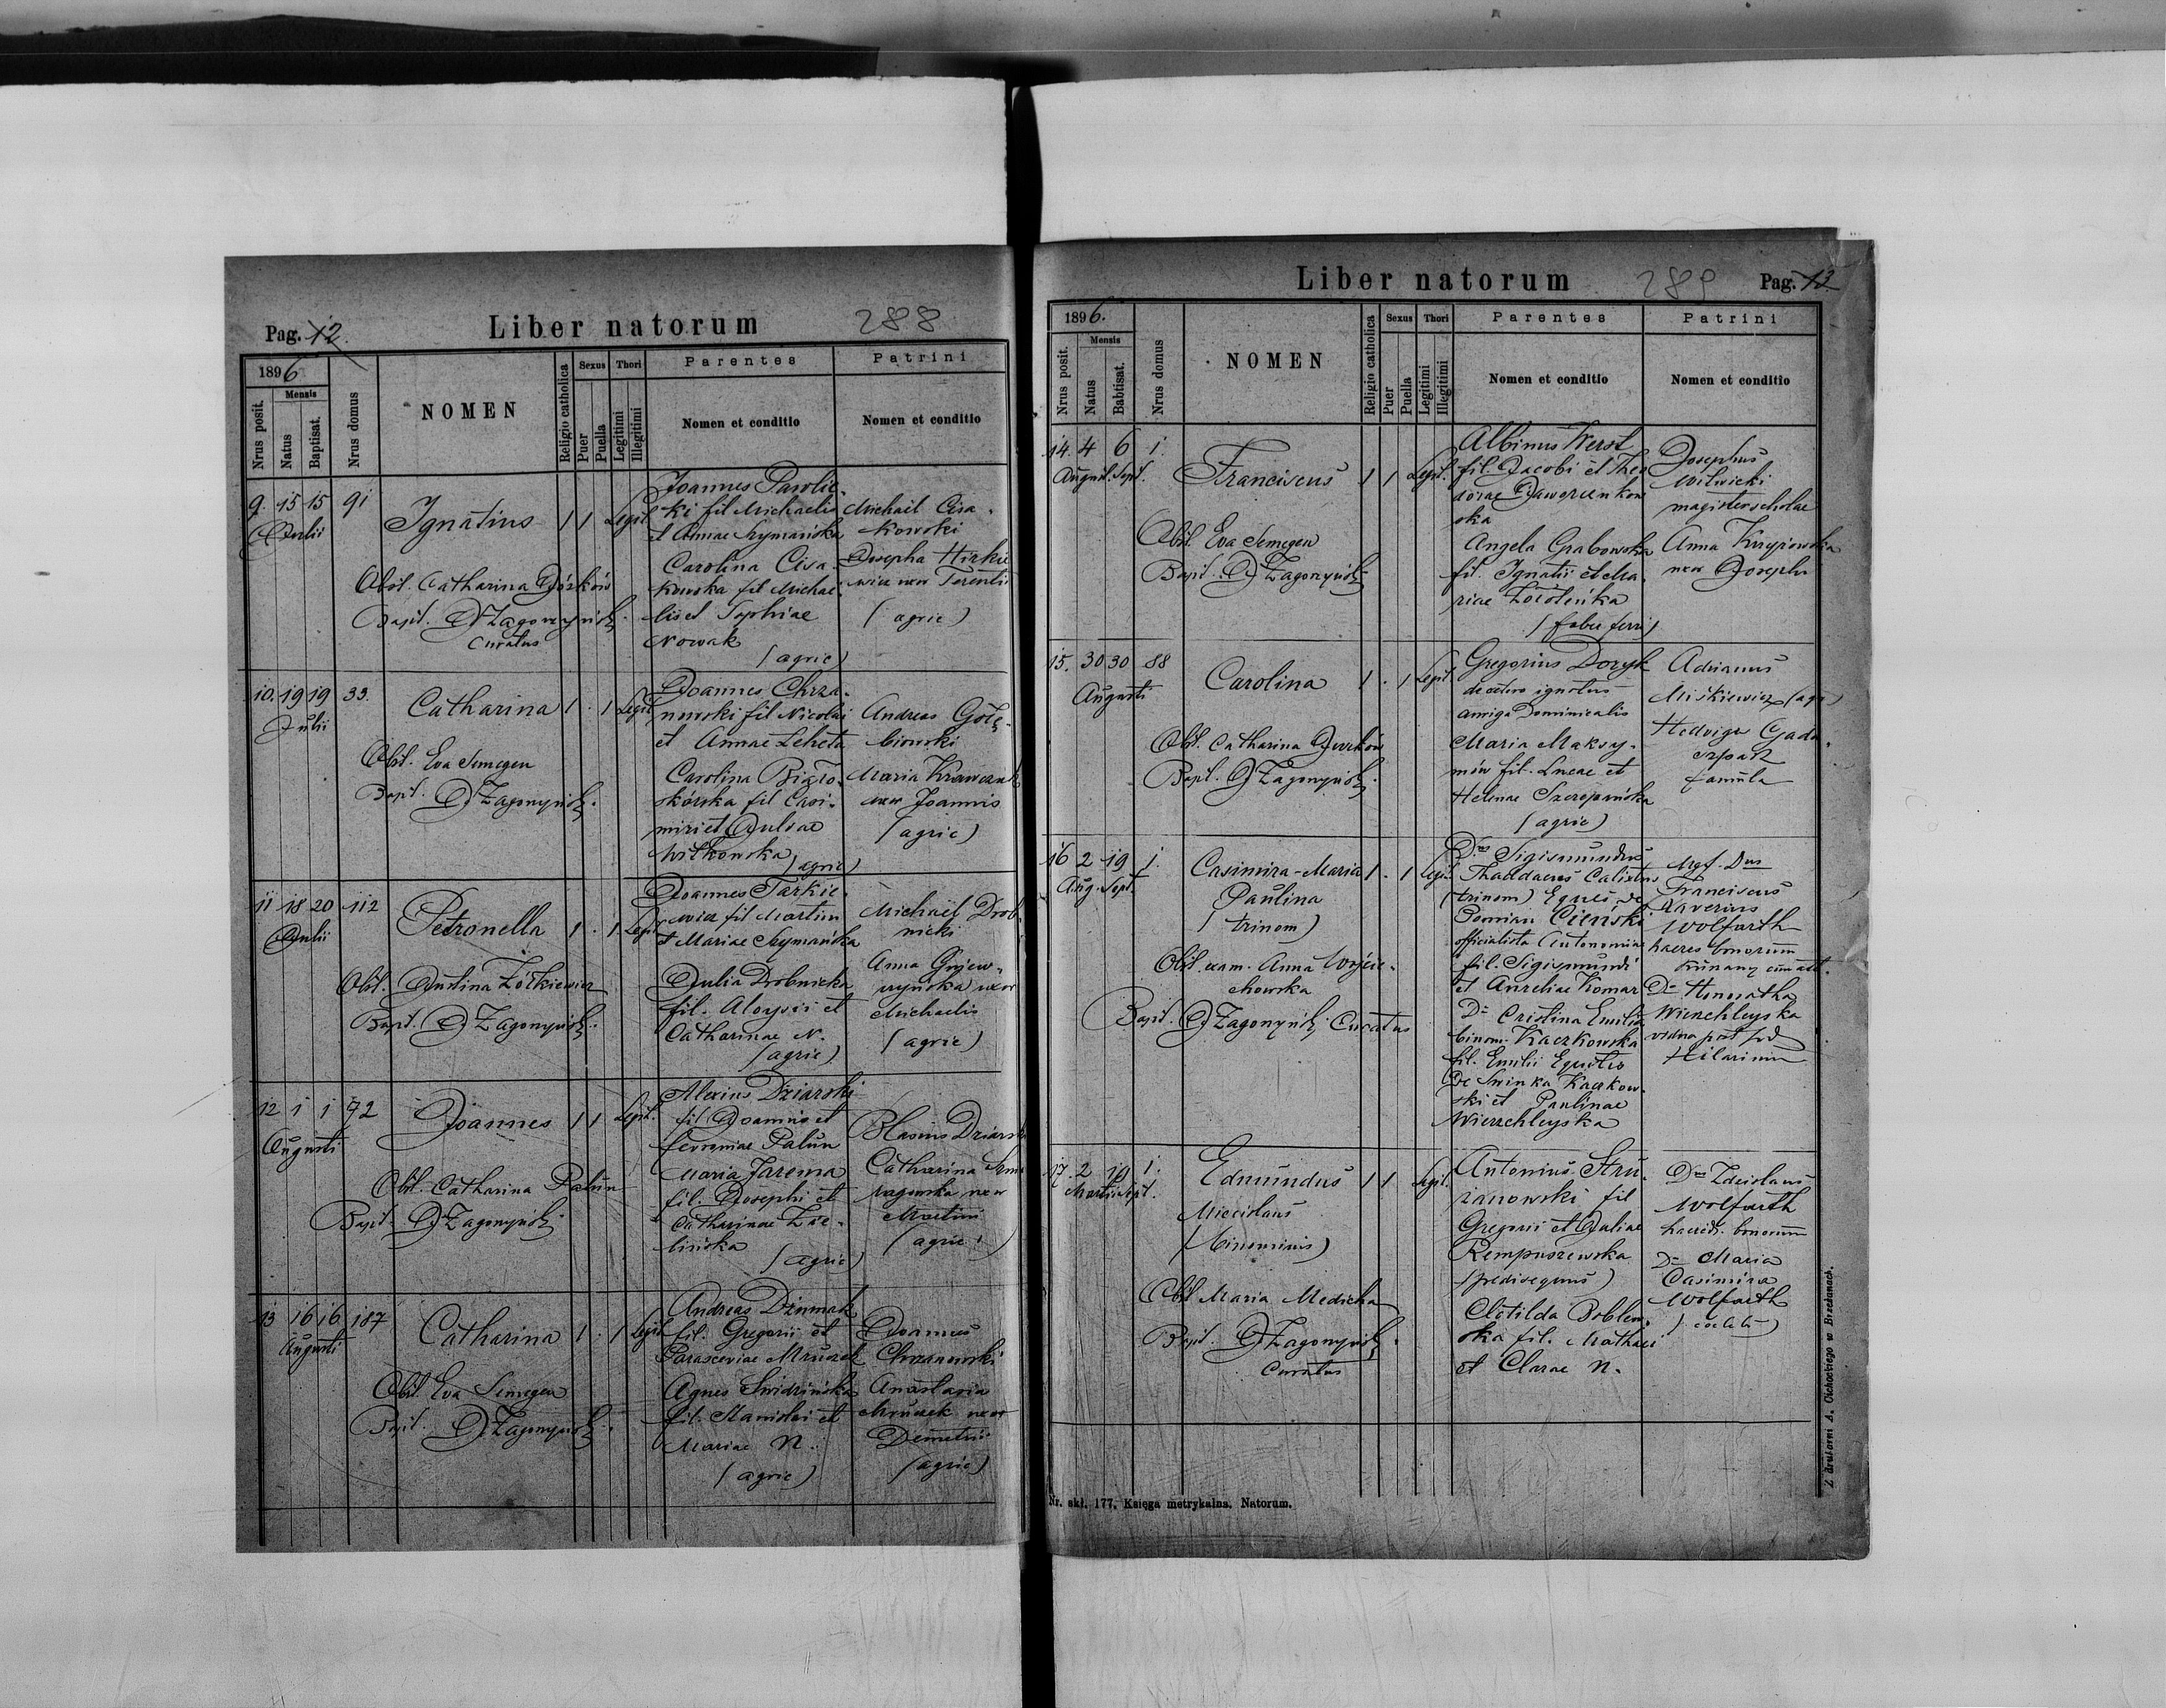 Pag. 12.
Liber natorum
288
1896
Mensis
Nrus posit.
Natus
Baptisat.
Nrus domus
NOMEN
Religio catholica
Sexus
Puer
Puella
Thori
Legitimi
Illegitimi
Parentes
Nomen et conditio
Patrini
Nomen et conditio
9. 15 15 91
Julii
Ignatius
1 1 Legit.
Obst. Catharina
Bapt. D Zagonyński
Curatus
Joannes
ki fil Michaelis
et Annae Szymańska
Carolina Cisa-
kowska fil Michae-
lis et Sophiae
Nowak
(agric)
Michael Cisa-
kowski
Josepha
uxor Terentii
(agric)
10. 19 19 33.
Julii
Catharina
1 . 1 Legit
Obst. Eva Semegen
Bapt. D Zagonyński.
Joannes Chrza-
nowski fil Nicolai
et Annae Leheta
Carolina Biało-
skórska fil Casi-
miri et Juliae
Witkowska
(agric)
Andreas Gołę-
biowski
Maria Krawczuk
uxor Joannis
(agric)
11 18 20 112
Julii
Petronella
1 . 1 Legit
Obst. Justina Żółkiewicz
Bapt. D Zagonyński.
Joannes Tarkie-
wicz fil Martini
et Mariae Szymańska
Julia Drobnicka
fil. Aloysii et
Catharinae N.
(agric)
Michaël Drob-
nicki
Anna
uxor
Michaelis
(agric)
12 1 1 92
Augusti
Joannes
1 1 Legit.
Obst. Catharina Palun
Bapt. D Zagonyński
Alexius Dziarski
fil Joannis et
Palun
Maria Jarema
fil. Josephi et
Catharinae Zie-
lińska
(agric)
Blasius Dziarski
Catharina
uxor
Martini
(agric.)
13 16 16 187
Augusti
Catharina
1 . 1 Legit
Obst. Eva Semegen
Bapt. D Zagonyński.
Andreas
fil. Gregorii et
Parasceviae Mruczek
Agnes Świdzińska
fil. Stanislai et
Mariae N.
(agric)
Joannes
Chrzanowski
Anastasia
Mruczek uxor
Demetrii
(agric)
Liber natorum
289
Pag. 13.
1896.
Mensis
Nrus posit.
Natus
Babtisat.
Nrus domus
NOMEN
Religio catholica
Sexus
Puer
Puella
Thori
Legitimi
Illegitimi
Parentes
Nomen et conditio
Patrini
Nomen et conditio
14. 4 6 1.
August. Sept.
Franciscus
1 1 Legit.
Obst. Eva Semegen
Bapt. D Zagonyński
Albinus Kerst
fil. Jacobi et Theo
dorae
ska
Angela Grabowska
fil. Ignatii et Ma-
riae
(faber ferri)
Josephus
Witwicki
magister scholae
Anna
uxor Josephi
15. 30 30 88
Augusti
Carolina
1 . 1 Legit
Obst. Catharina
Bapt. D Zagonyński.
Gregorius Dozyk
de cetero ignotus
auriga Dominicalis
Maria Maksy-
mów fil. Lucae et
Helenae
(agric)
Adrianus
Miśkiewicz (agr)
Hedvigis Gada-
famula
16 2 19 1.
Aug. Sept.
Casimira-Maria
Paulina
(trinom)
1 . 1 Legit.
Obst. exam. Anna Wojcie-
chowska
Bapt. D Zagonyński Curatus
Dnus Sigismundus
Thaddaeus Calixtus
(trinom) Eques de
Pomian Cieński
officialista Autonomiae
fil. Sigismundi
et Aureliae Komar
Dna Cristina Emilia
binom. Kaczkowska
fil. Emilii Equitis
De Swinka Kaczkow-
ski et Paulinae
Wierzchleyska
Mgf. Dnus
Franciscus
Xaverius
Wolfarth
haeres bonorum
Dna Honoratha
Wierzchleyska
vidua post
Hilarium
17. 2 19 1.
Martii Sept.
Edmundus
Miecislaus
(binominis)
1 1 Legit.
Obst Maria Medicka
Bapt. D Zagonyński.
Curatus
Antonius Stru-
zanowski fil
Gregorii et Juliae
Rempuszewska
(pedisequus)
Clotilda
ska fil. Mathaei
et Clarae N.
Dnus Zdzislaus
Wolfarth
haered. bonorum
Dna Maria
Casimira
Wolfarth
Nr. skł. 177. Księga metrykalna. Natorum.
Z drukarni A. Cichockiego w Brzeżanach.